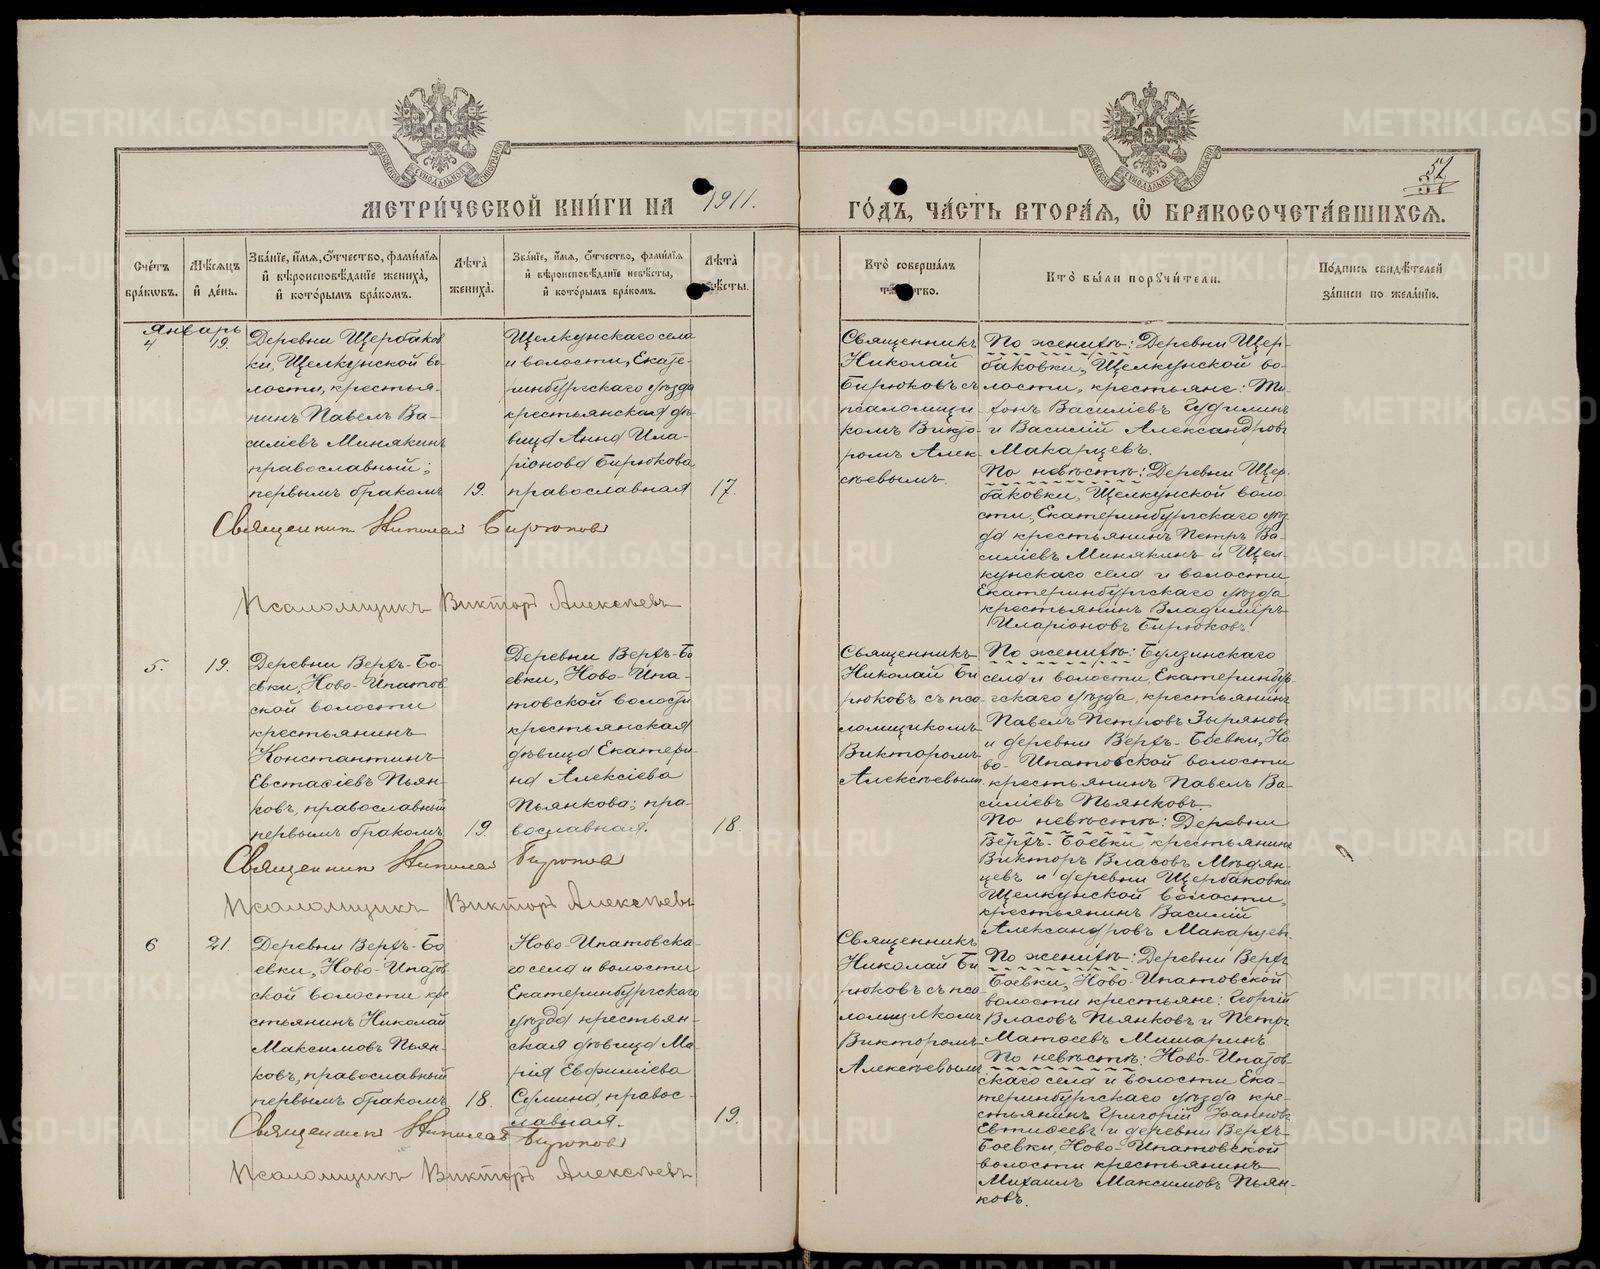 МЕТРИ́ЧЕСКОЙ КНИ́ГИ НА 1911.
ГО́ДЪ, ЧА́СТЬ ВТОРА́Я, Ѡ҆ БРАКОСОЧЕТА́ВШИХСЯ.
51
Сче́тъ
бра́кѡвъ.
Мѣ́сяцъ
и҆ де́нь.
Зва́нїе, и҆́мя, ѻ҆́тчество, фами́лїя
и҆ вѣроисповѣ́данїе жениха̀,
и҆ кото́рымъ бра́комъ.
Лѣ́та
жениха̀.
Зва́нїе, и҆́мя, ѻ҆́тчество, фами́лїя
и҆ вѣроисповѣ́данїе невѣ́сты,
и҆ кото́рымъ бра́комъ.
Лѣ́та
невѣ́сты.
Кто̀ соверша́лъ
та́инство.
Кто̀ бы́ли порꙋчи́тели.
По́дпись свидѣ́телей
за́писи по жела́нїю.
Январь
4
19.
Деревни Щербаков
ки, Щелкунской во
лости, крестья-
нинъ Павелъ Ва-
силіевъ Минякинъ
православный;
первымъ бракомъ
19.
Щелкунскаго села
и волости, Екате-
ринбургскаго уѣзда
крестьянская дѣ-
вица Анна Ила-
ріонова Бирюкова
православная
17.
Священникъ Николай Бирюковъ
Псаломщикъ Викторъ Алексѣевъ
Священникъ
Николай
Бирюковъ съ
псаломщи-
комъ Викто-
ромъ Алек-
сѣевымъ.
По женихѣ: Деревни Щер-
баковки, Щелкунской во-
лости, крестьяне: Ти-
хонъ Василіевъ Гудилинъ
и Василій Александровъ
Макарцевъ.
По невѣстѣ: Деревни Щер-
баковки, Щелкунской воло-
сти, Екатеринбургскаго уѣз-
да крестьянинъ Петръ Ва-
силіевъ Минякинъ и Щел-
кунскаго села и волости
Екатеринбургскаго уѣзда
крестьянинъ Владимиръ
Иларіоновъ Бирюковъ.
5.
19.
Деревни Верхъ-Бо-
евки, Ново-Ипатов
ской волости
крестьянинъ
Константинъ
Евстафіевъ Пьян-
ковъ, православный
первымъ бракомъ
19.
Деревни Верхъ-Бо
евки, Ново-Ипа-
товской волости
крестьянская
дѣвица Екатери-
на Алексіева
Пьянкова; пра-
вославная.
18.
Священникъ Николай Бирюковъ
Псаломщикъ Викторъ Алексѣевъ
Священникъ
Николай Би
рюковъ съ пса-
ломщикомъ
Викторомъ
Алексѣевымъ
По женихѣ: Булзинскаго
села и волости, Екатеринбур
гскаго уѣзда, крестьянинъ
Павелъ Петровъ Зыряновъ
и деревни Верхъ-Боевки, Но
во-Ипатовской волости
крестьянинъ Павелъ Ва-
силіевъ Пьянковъ.
По невѣстѣ: Деревни
Верхъ-Боевки, крестьянинъ
Викторъ Власовъ Мѣдян-
цевъ и деревни Щербаковки
Щелкунской волости,
крестьянинъ Василій
Александровъ Макарцевъ.
6
21.
Деревни Верхъ-Бо
евки, Ново-Ипатов
ской волости кре
стьянинъ Николай
Максимовъ Пьян-
ковъ, православный
первымъ бракомъ
18.
Ново-Ипатовска-
го села и волости
Екатеринбургскаго
уѣзда крестьян-
ская дѣвица Ма-
рія Евфиміева
Сумина, правос-
лавная.
19.
Священникъ Николай Бирюковъ
Псаломщикъ Викторъ Алексѣевъ
Священникъ
Николай Би
рюковъ съ пса
ломщикомъ
Викторомъ
Алексѣевымъ
По женихѣ: Деревни Верхъ
Боевки, Ново-Ипатовской
волости крестьяне: Георгій
Власовъ Пьянковъ и Петръ
Матѳеевъ Мишаринъ
По невѣстѣ: Ново-Ипатов-
скаго села и волости Ека-
теринбургскаго уѣзда кре-
стьянинъ Григорій Іоанновъ
и деревни Верхъ-
Боевки, Ново-Ипатовской
волости крестьянинъ
Михаилъ Максимовъ Пьян-
ковъ.
METRIKI.GASO-URAL.RU